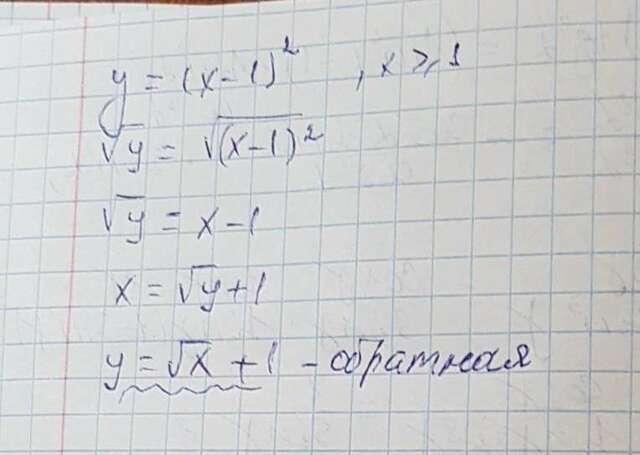 y = (x-1)², x ⩾ 1
√y = √(x-1)²
√y = x-1
x = √y+1
y = √x + 1 - обратная